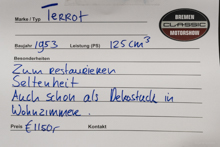 Marke / Typ Terrot
BREMEN
CLASSIC
MOTORSHOW
Baujahr 1953 Leistung (PS) 125 cm³
Besonderheiten
Zum restaurieren
Seltenheit
Auch schon als Dekostück in
Wohnzimmer.
Preis € 1150,- Kontakt